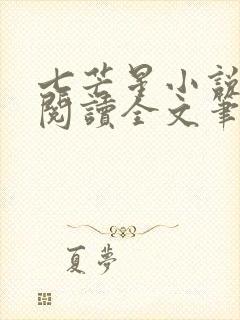 七芒星小說
閱讀全文筆
夏夢